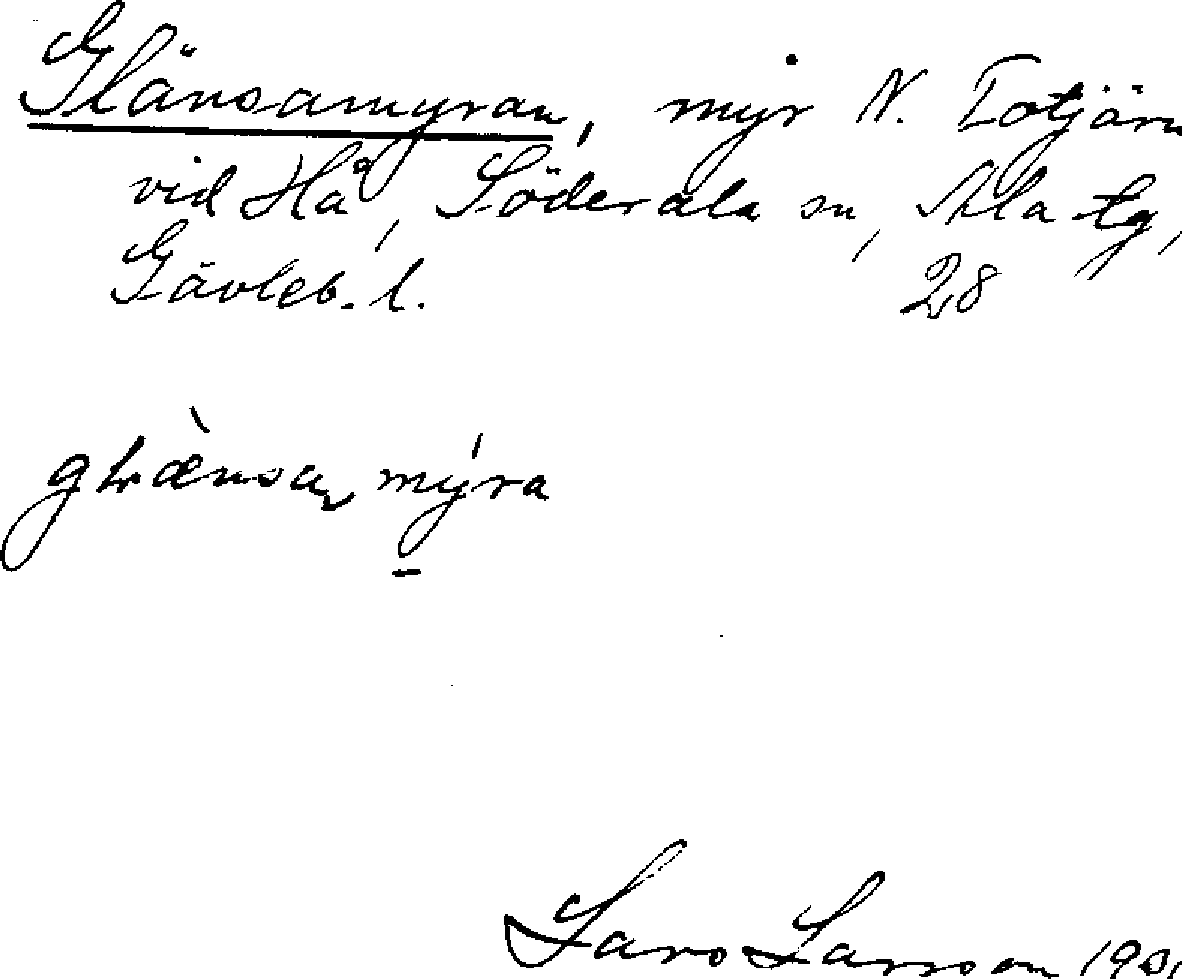 Glänsamyran, myr N. Totjärn
vid Hå, Söderala sn, Ala tg,
Gävleb. l. 28
glænsa mýra
Lars Larsson 1901